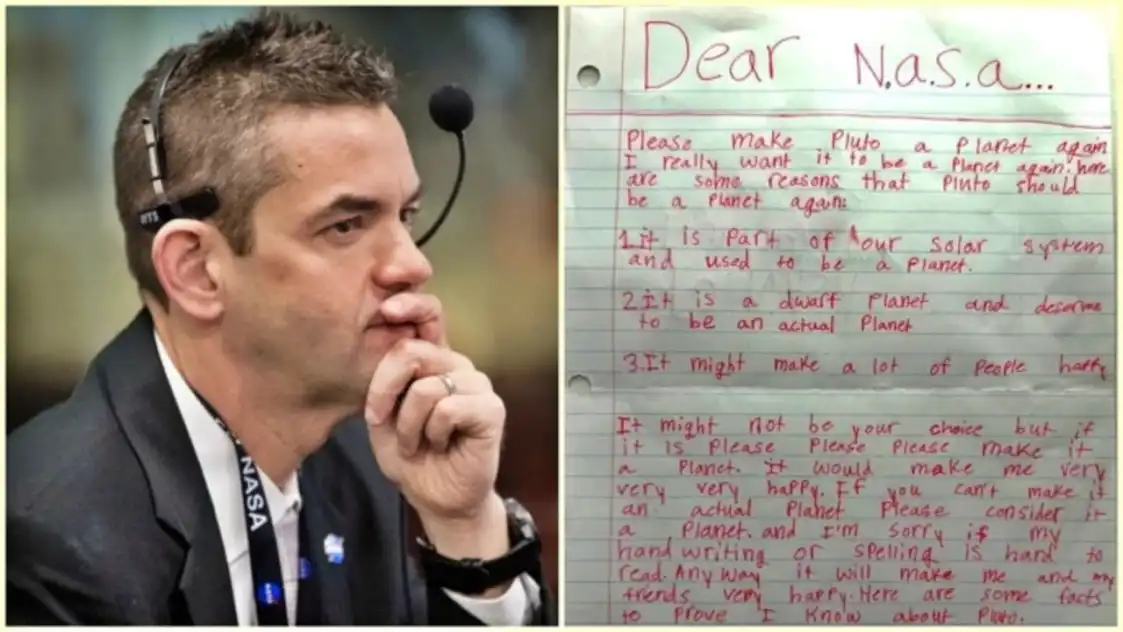 RTS
NASA
Dear N.a.s.a...
Please make Pluto a Planet again
I really want it to be a Planet again. here
are some reasons that Pluto should
be a Planet again:
1.it is part of our solar system
and used to be a Planet.
2.It is a dwarf Planet and deserve
to be an actual Planet
3.It might make a lot of people happy
It might not be your choice but if
it is Please Please Please make it
a Planet. it would make me very
very very happy. If you can't make it
an actual Planet Please consider it
a Planet. and I'm sorry if my
hand writing or spelling is hard to
read. Any way it will make me and my
friends very happy. Here are some facts
to prove I know about Pluto.